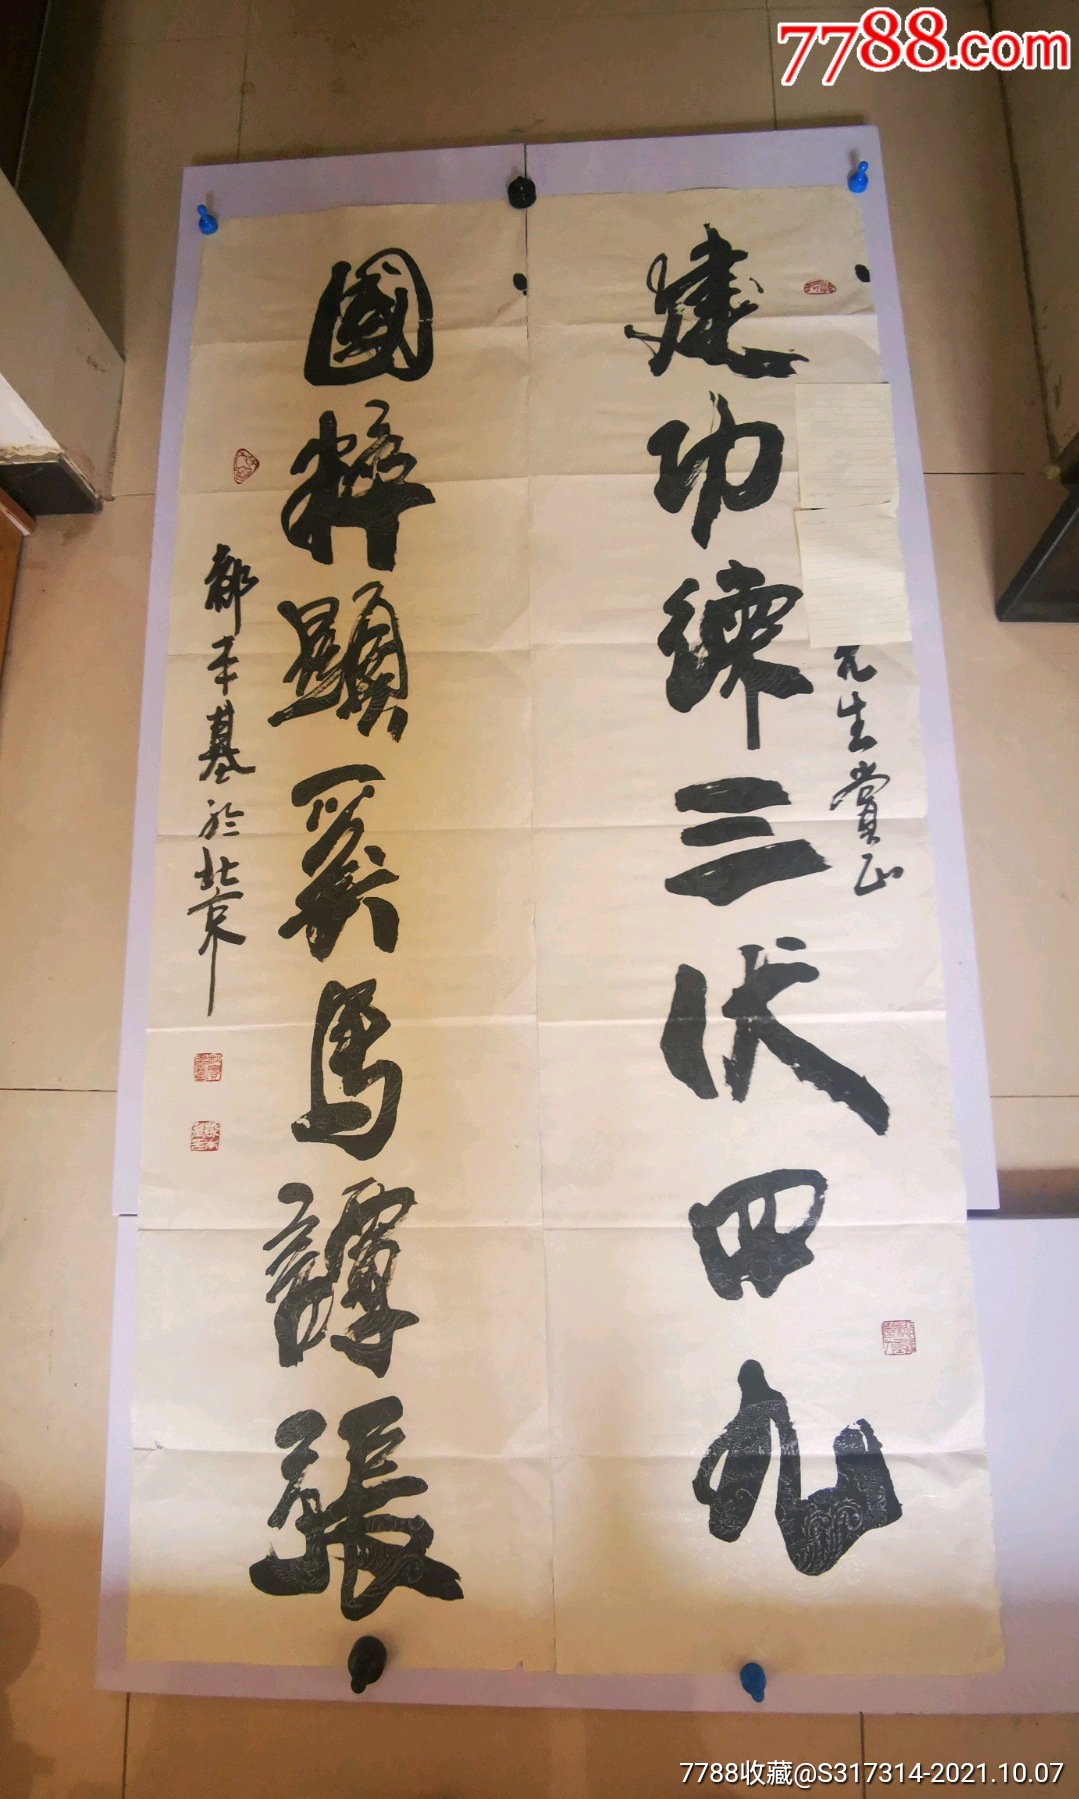 7788.com
建功练三伏四九
先生赏正
國粹顯奚馬譚張
郝本基於北京
7788收藏@S317314-2021.10.07